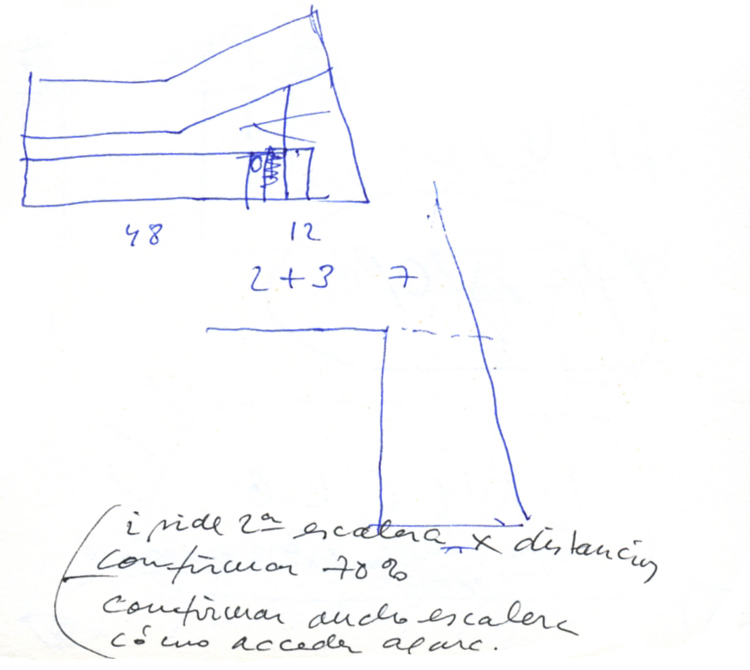 48 12
2 + 3 7
¿ pide 2ª escalera x distancias
confirmar 70%
confirmar ancho escalera
cómo acceder aparc.